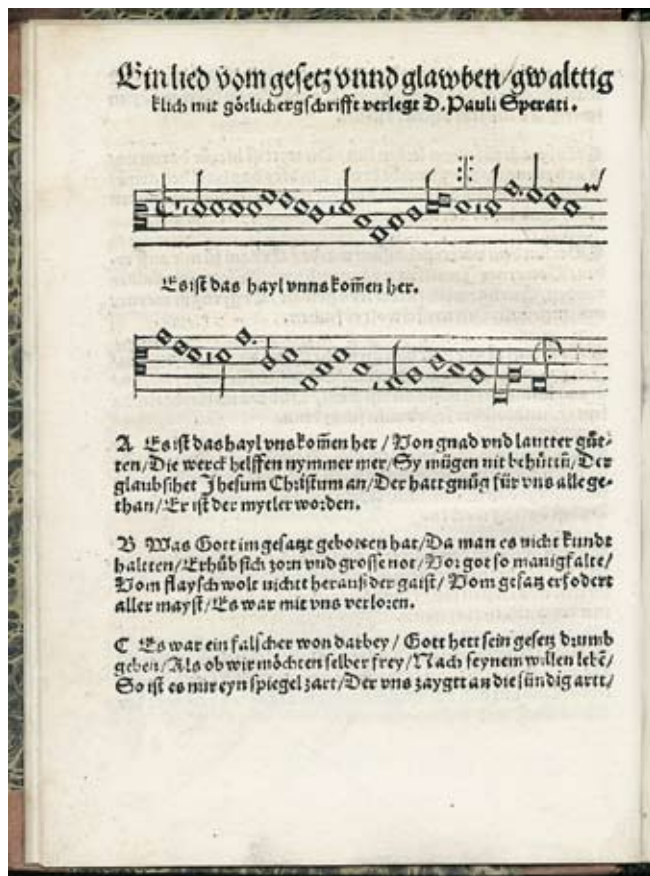 Ein lied vom gesetz vnnd glawben/gwalttig
klich mit götlicher gschrifft verlegt D. Pauli Sperati.
Es ist das hayl vnns kom̄en her.
A Es ist das hayl vns kom̄en her / Von gnad vnd lautter güt-
ten/Die werck helffen nymmer mer/Sy mügen nit behüttn̄/Der
glaub sihet Jhesum Christum an/Der hatt gnůg für vns alle ge-
than/Er ist der mytler worden.
B Was Gott im gesatzt geboten hat/Da man es nicht kundt
haltten/Erhůb sich zorn vnd grosse not/Vor got so manigfalte/
Vom flaysch wolt nichtt herauß der gaist/Vom gesatz erfodert
aller mayst/Es war mit vns verloren.
C Es war ein falscher won darbey/ Gott hett sein gesetz drumb
geben/Als ob wir möchten selber frey/Nach seynem willen lebē/
So ist es nur eyn spiegel zart/Der vns zaygtt an die sündig artt/